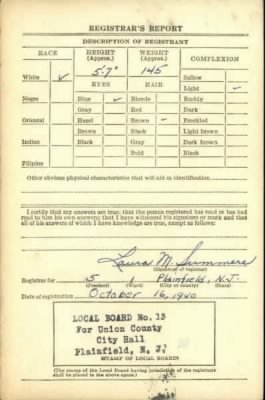 REGISTRAR'S REPORT
DESCRIPTION OF REGISTRANT
RACE HEIGHT (Approx.) WEIGHT (Approx.) COMPLEXION
5'7" 145 Sallow
White ✓ EYES HAIR Light ✓
Negro Blue ✓ Blonde Ruddy
Gray Red Dark
Oriental Hazel Brown ✓ Freckled
Brown Black Light brown
Indian Black Gray Dark brown
Bald Black
Filipino
Other obvious physical characteristics that will aid in identification
I certify that my answers are true; that the person registered has read or has had
read to him his own answers; that I have witnessed his signature or mark and that
all of his answers of which I have knowledge are true, except as follows:
Laura M. Summers
(Signature of registrar)
Registrar for 5 1 Plainfield, N.J.
(Precinct) (Ward) (City or county) (State)
Date of registration October 16, 1940
LOCAL BOARD No. 13
For Union County
City Hall
Plainfield, N. J.
(STAMP OF LOCAL BOARD)
(The stamp of the Local Board having jurisdiction of the registrant
shall be placed in the above space.)